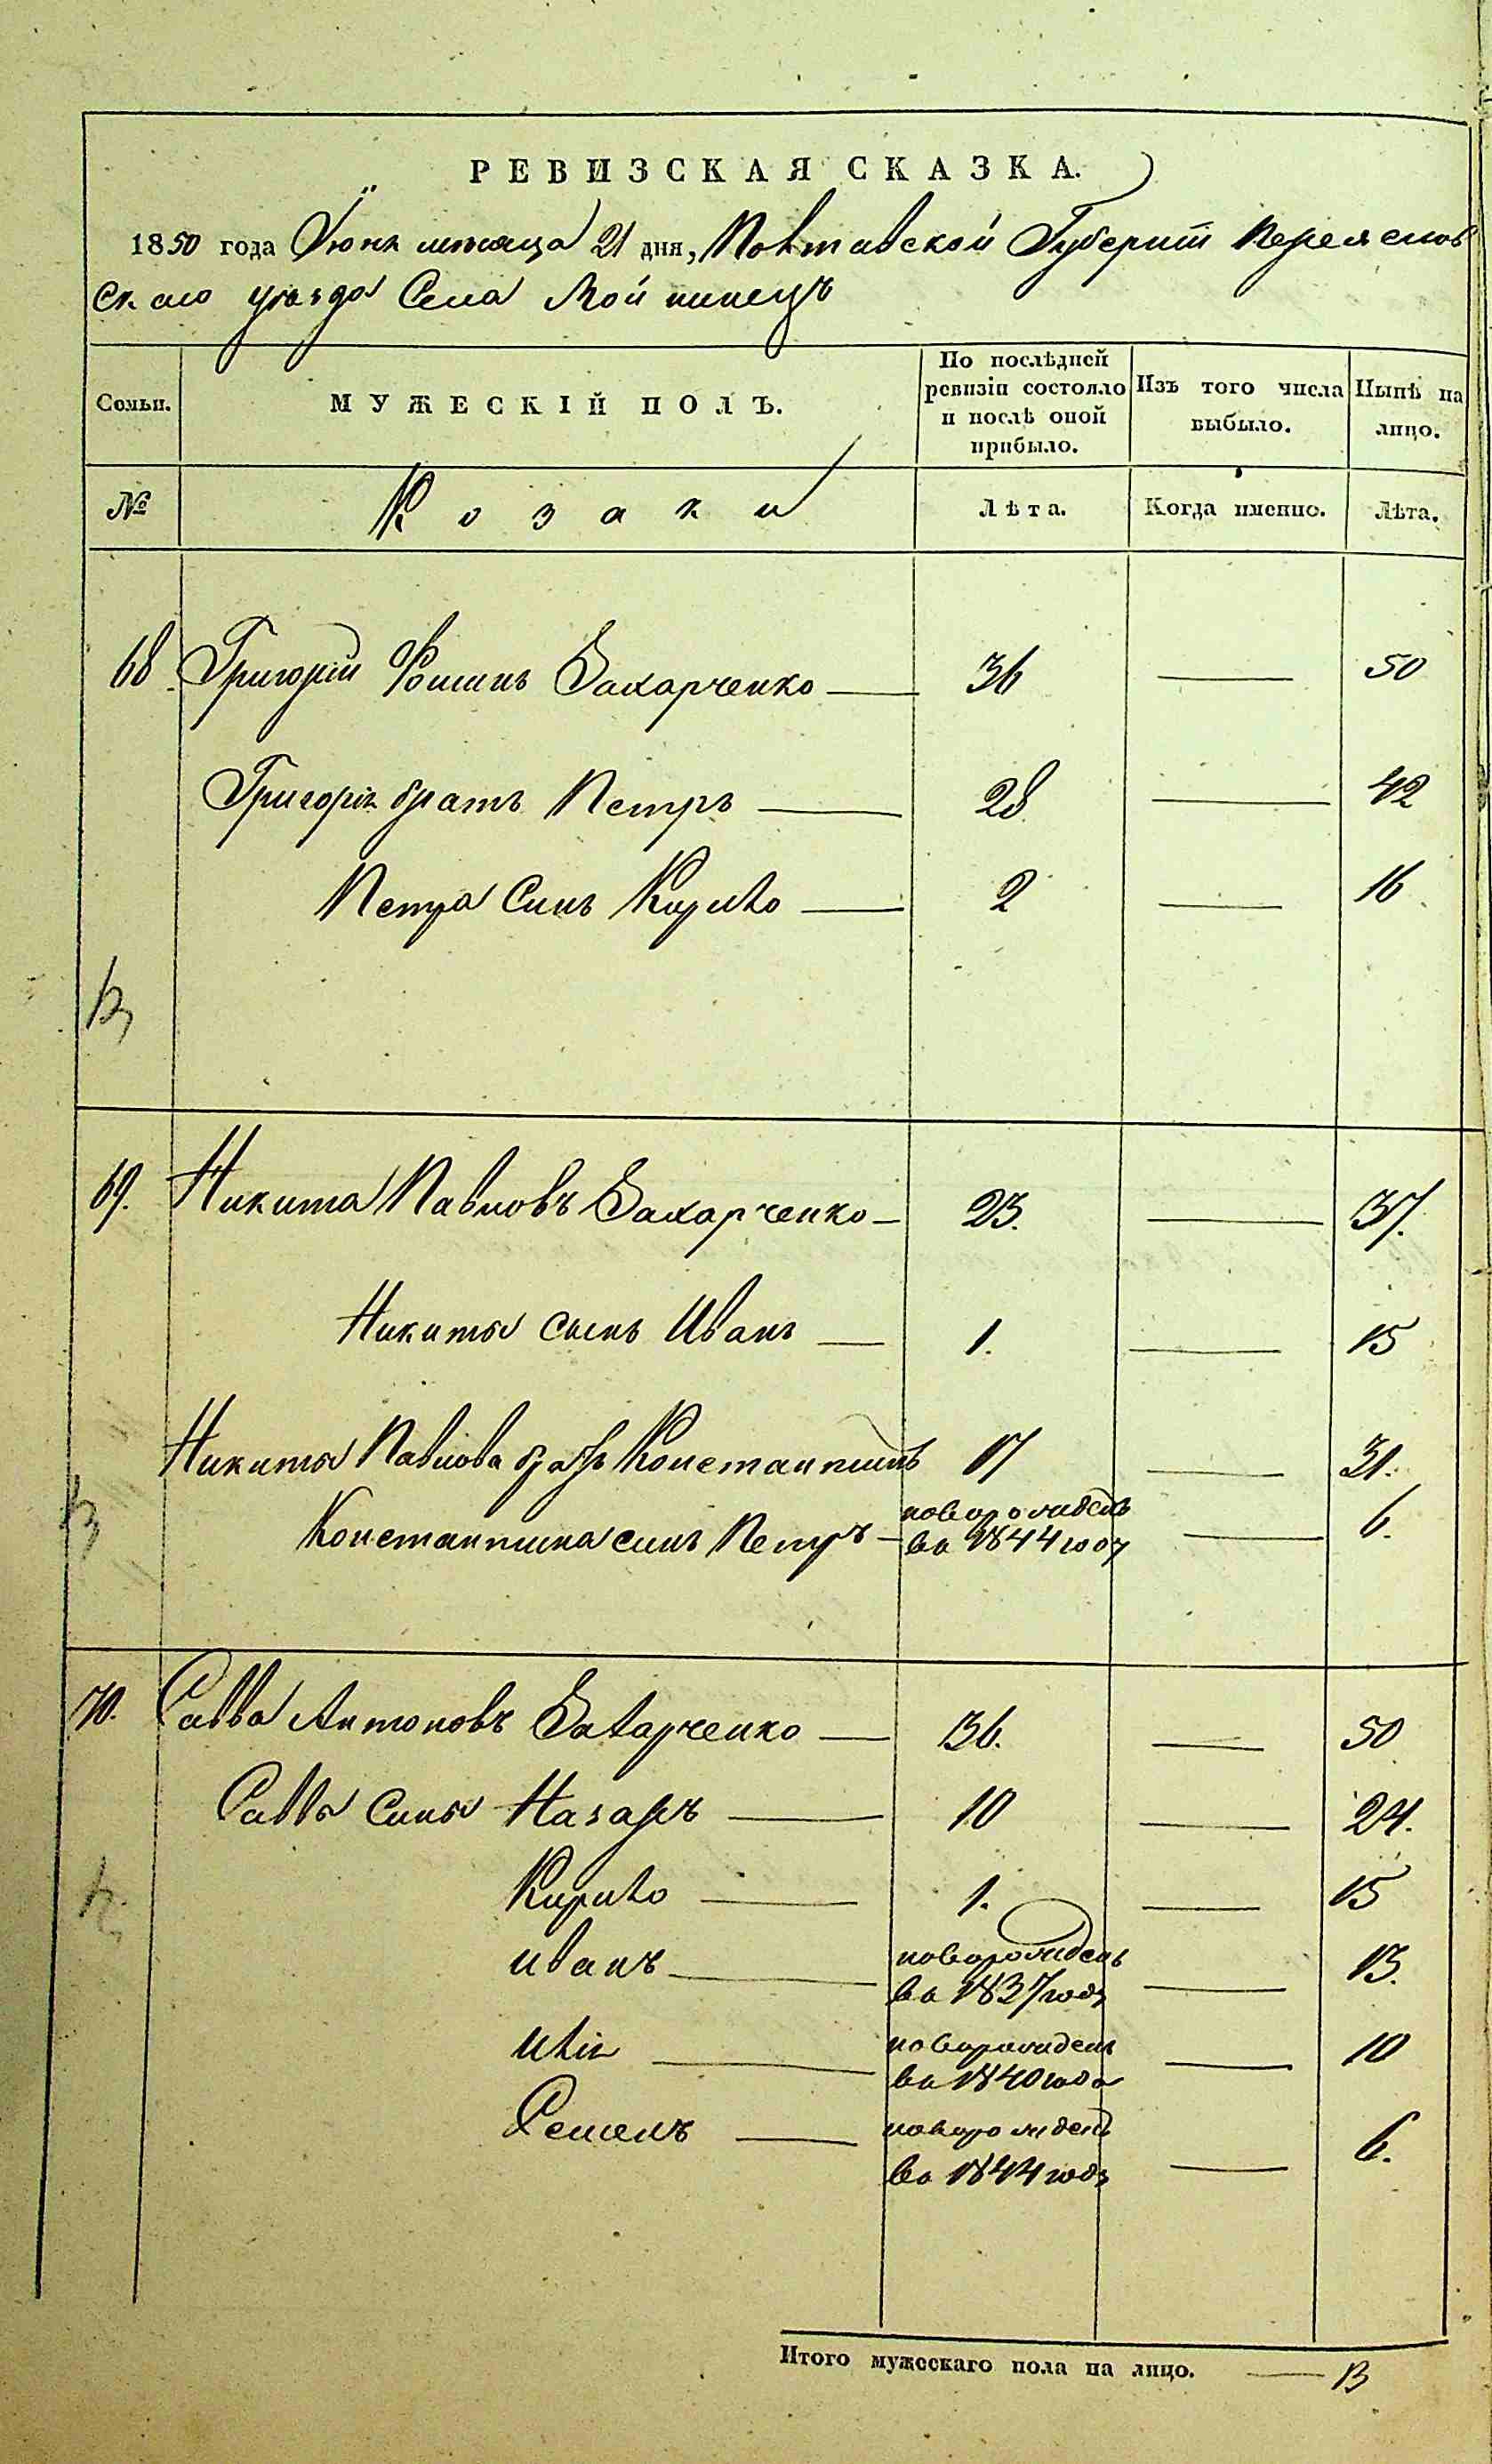 РЕВИЗСКАЯ СКАЗКА.
1850 года Июня месяца 21 дня, Полтавской Губернии Переяслов
скаго уезда Села Мойсинецъ
Семьи. МУЖЕСКІЙ ПОЛЪ. По послѣдней ревизіи состояло и послѣ оной прибыло. Изъ того числа выбыло. Нынѣ на лицо.
№ Козаки Лѣта. Когда именно. Лѣта.
68 Григорій Фоминъ Захарченко — 36 — 50
Григорія братъ Петръ — 28 — 42
Петра Синъ Кирило — 2 — 16
69. Никита Павловъ Захарченко — 23. — 37.
Никиты сынъ Иванъ — 1. — 15
Никиты Павлова братъ Константинъ 17 — 31.
Константина синъ Петръ — новорожденъ — 6.
во 1844 году
70. Савва Антоновъ Захарченко — 36. — 50
Саввы Сины Назаръ — 10 — 24.
Кирило — 1. — 15
Иванъ — новорожденъ — 13.
во 1837 году
Илія — новорожденъ — 10
во 1840 года
Семенъ — новорожденъ — 6.
во 1844 году
Итого мужескаго пола на лицо. — 13